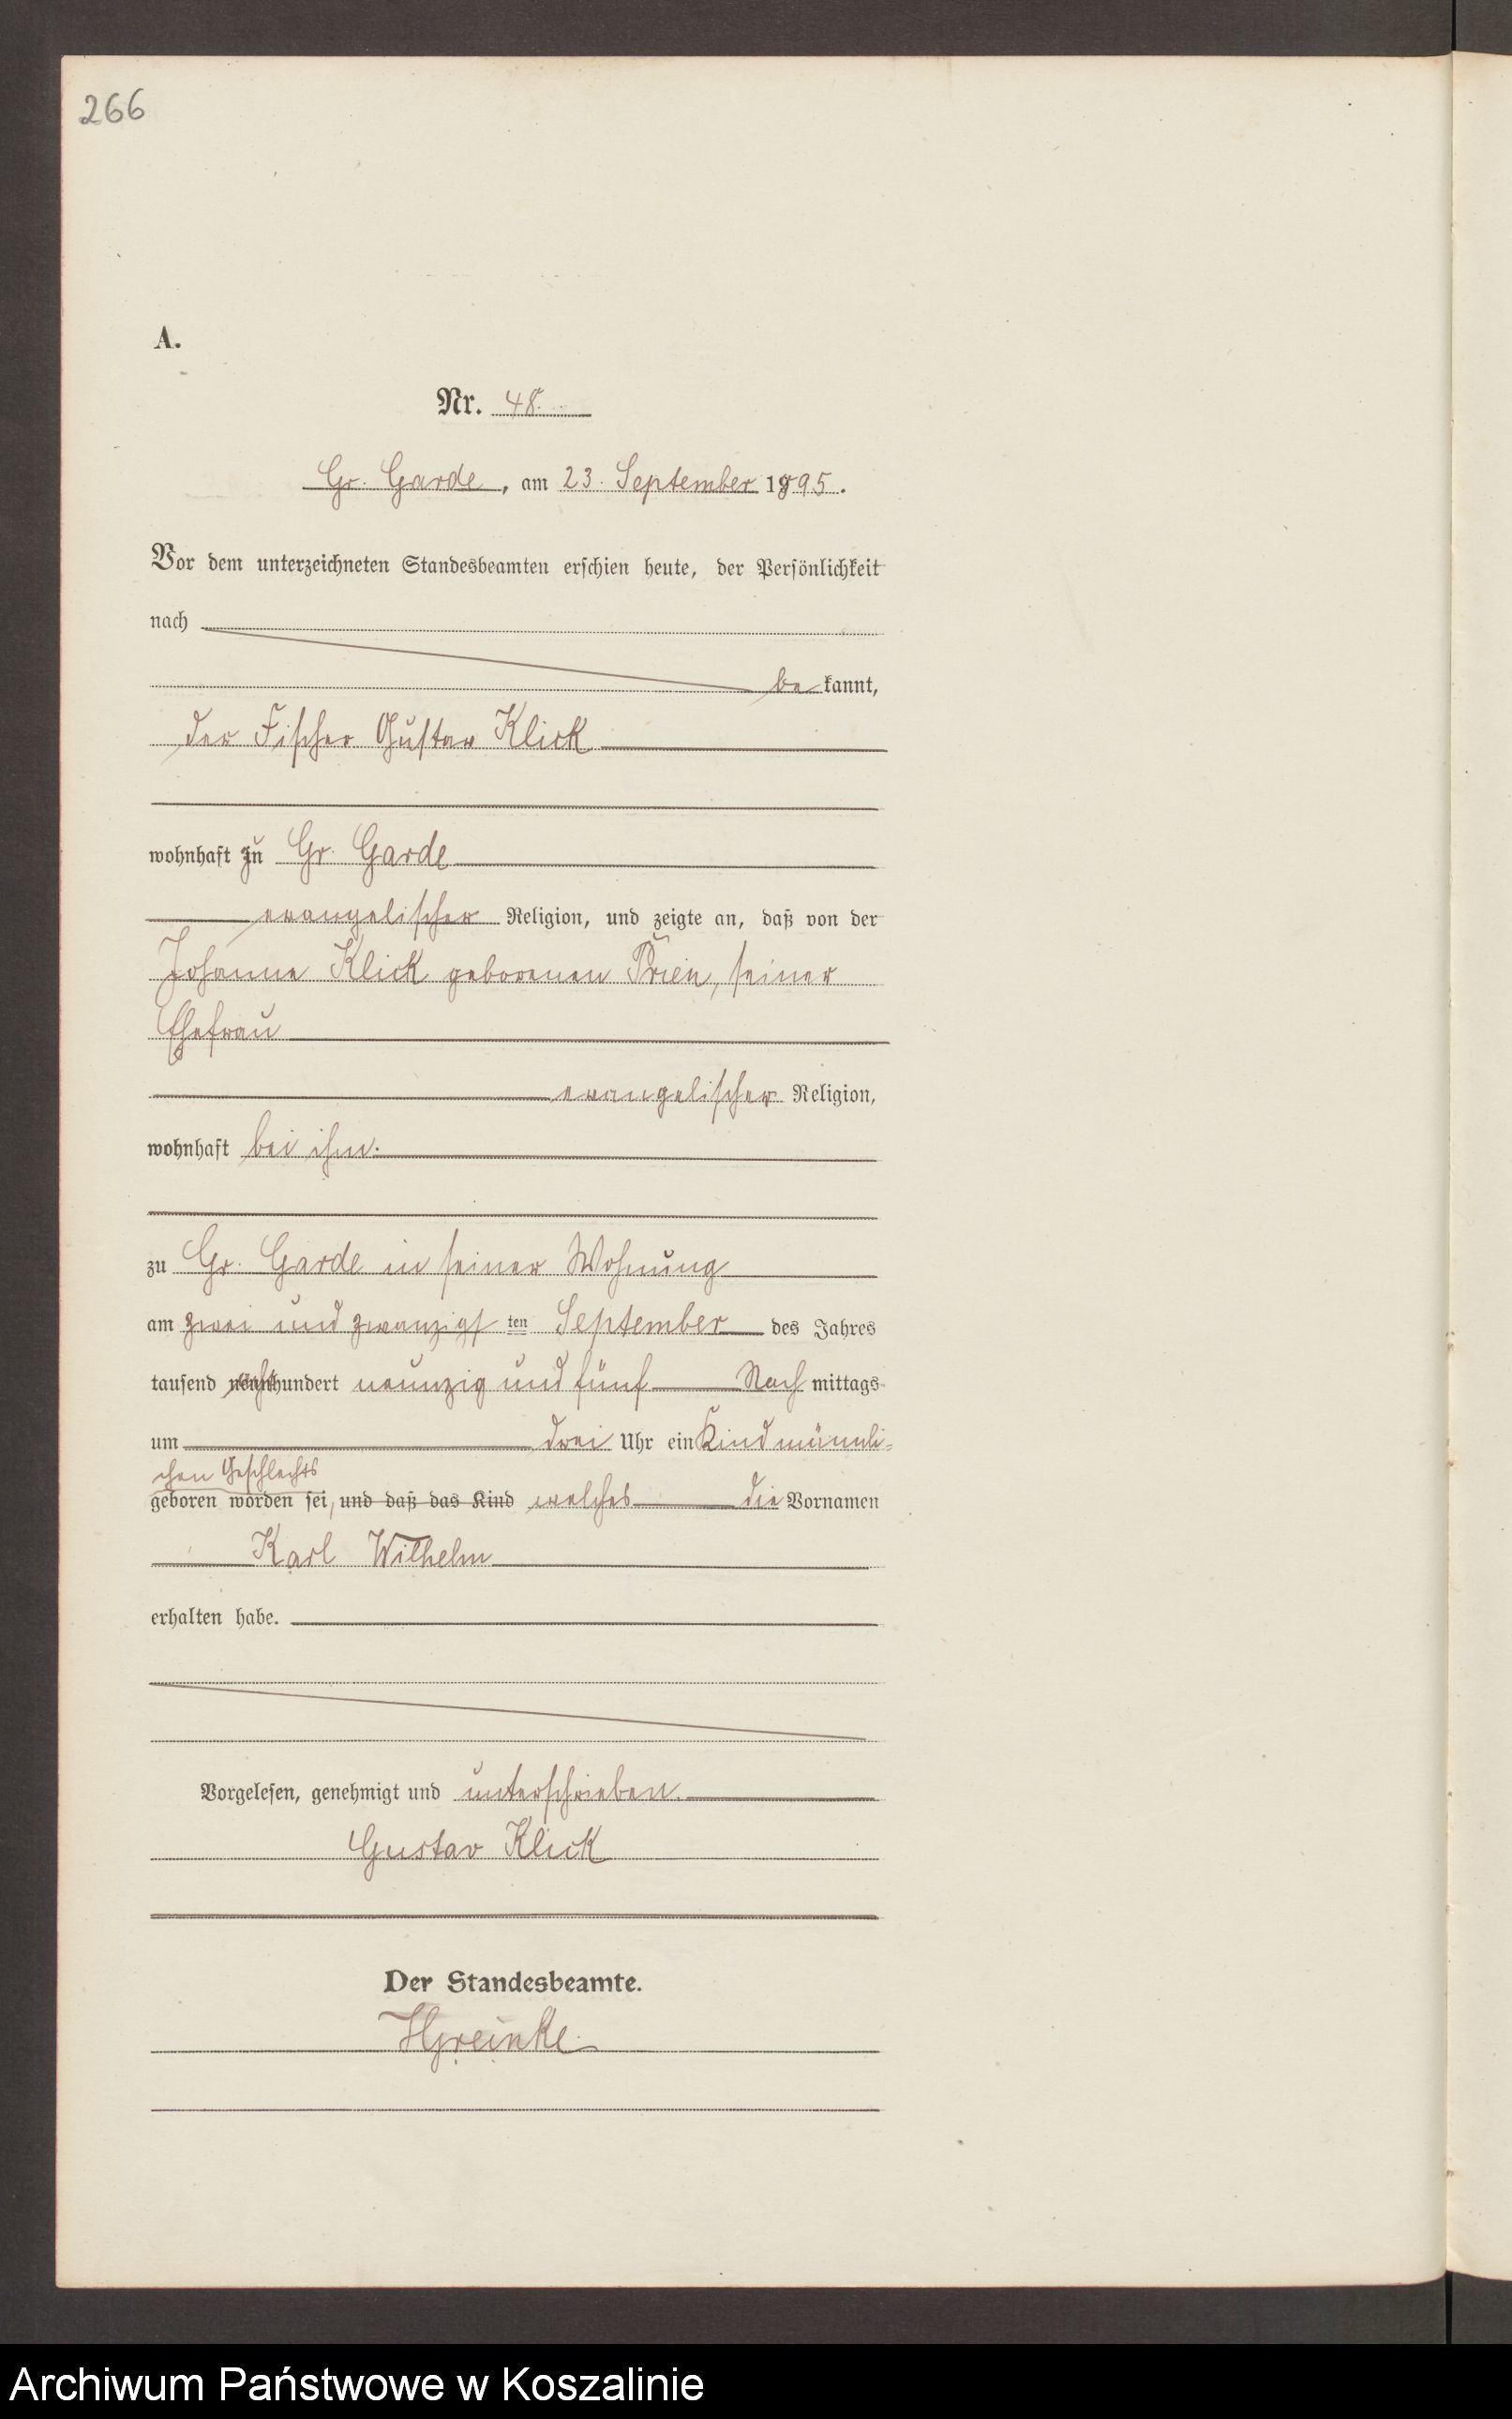 266
A.
Nr. 48.
Gr. Garde, am 23. September 1895.
Vor dem unterzeichneten Standesbeamten erschien heute, der Persönlichkeit
nach
be kannt,
der Fischer Gustav Klick
wohnhaft zu Gr. Garde
evangelischer Religion, und zeigte an, daß von der
Johanne Klick geborenen Prien, seiner
Ehefrau
evangelischer Religion,
wohnhaft bei ihm.
zu Gr. Garde in seiner Wohnung
am zwei und zwanzigsten September des Jahres
tausend achthundert neunzig und fünf Nach mittags
um drei Uhr ein Kind männli=
chen Geschlechts
geboren worden sei, und daß das Kind welches die Vornamen
Karl Wilhelm
erhalten habe.
Vorgelesen, genehmigt und unterschrieben.
Gustav Klick
Der Standesbeamte.
Archiwum Państwowe w Koszalinie